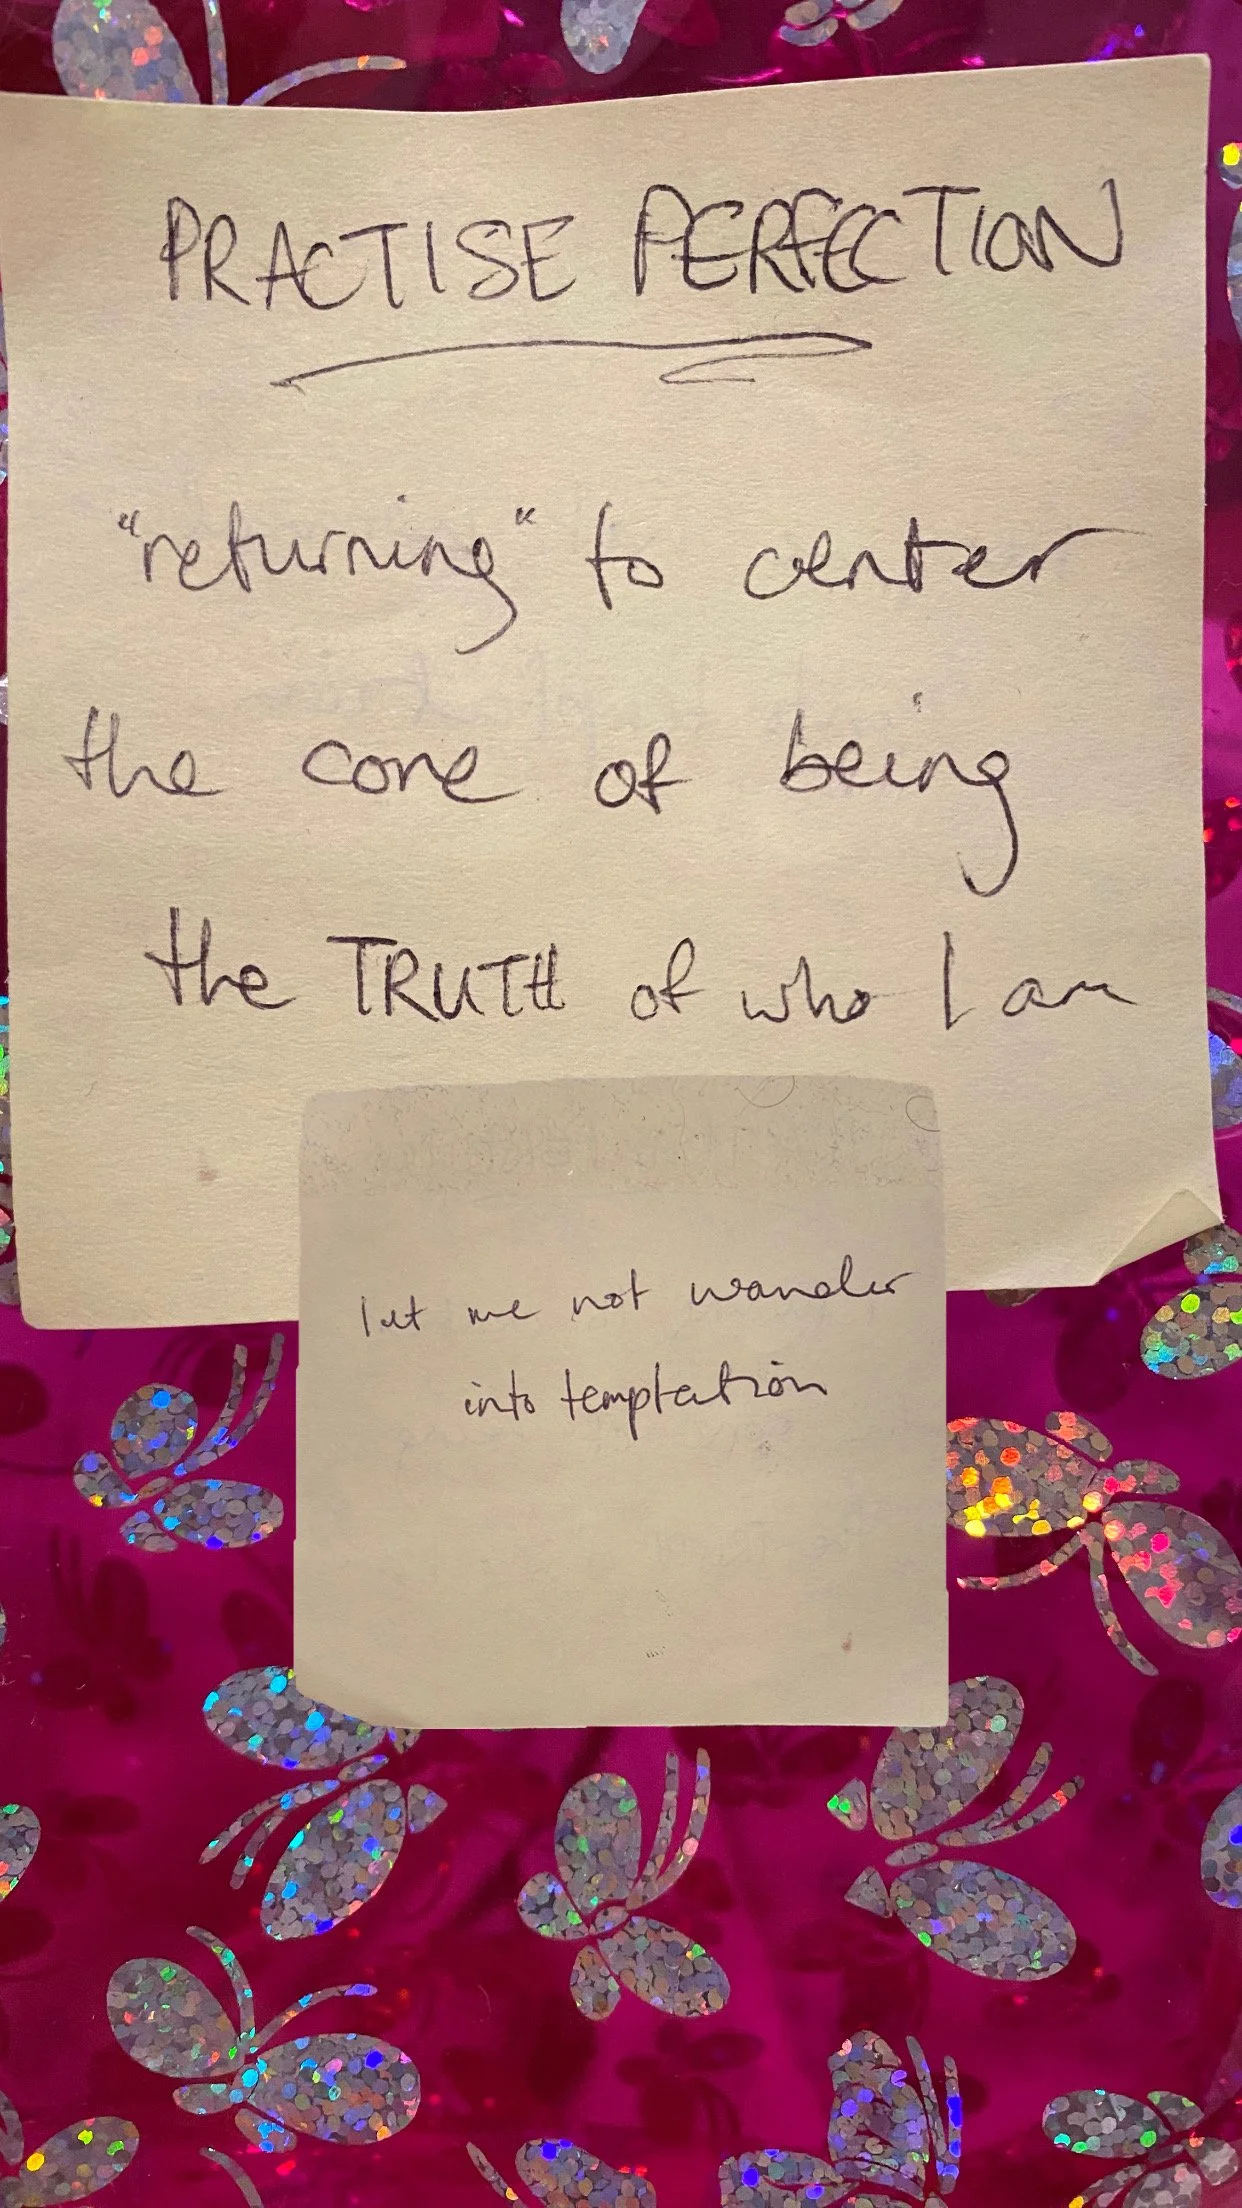 PRACTISE PERFECTION
"returning" to center
the core of being
the TRUTH of who I am
let me not wander
into temptation